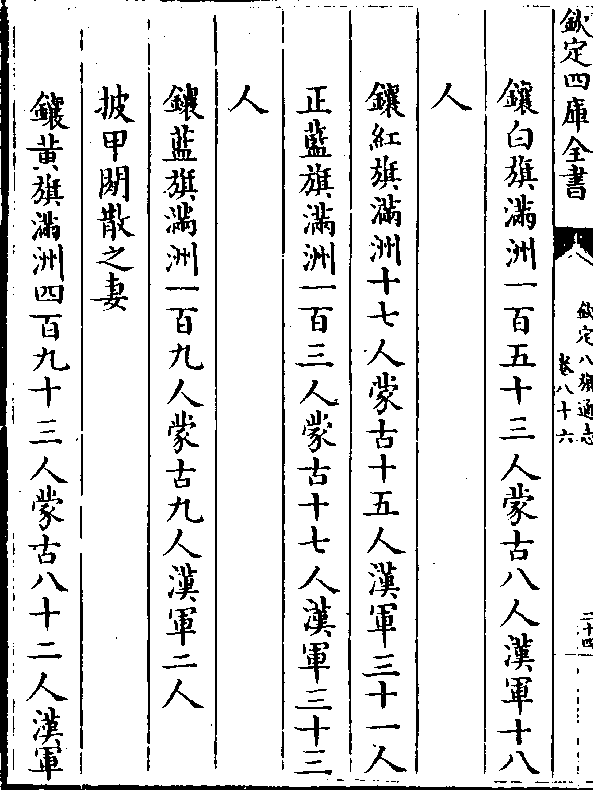 欽定四庫全書
欽定八旗通志
卷八十六
二十四
鑲白旗滿洲一百五十三人蒙古八人漢軍十八
人
鑲紅旗滿洲十七人蒙古十五人漢軍三十一人
正藍旗滿洲一百三人蒙古十七人漢軍三十三
人
鑲藍旗滿洲一百九人蒙古九人漢軍二人
披甲閑散之妻
鑲黃旗滿洲四百九十三人蒙古八十二人漢軍